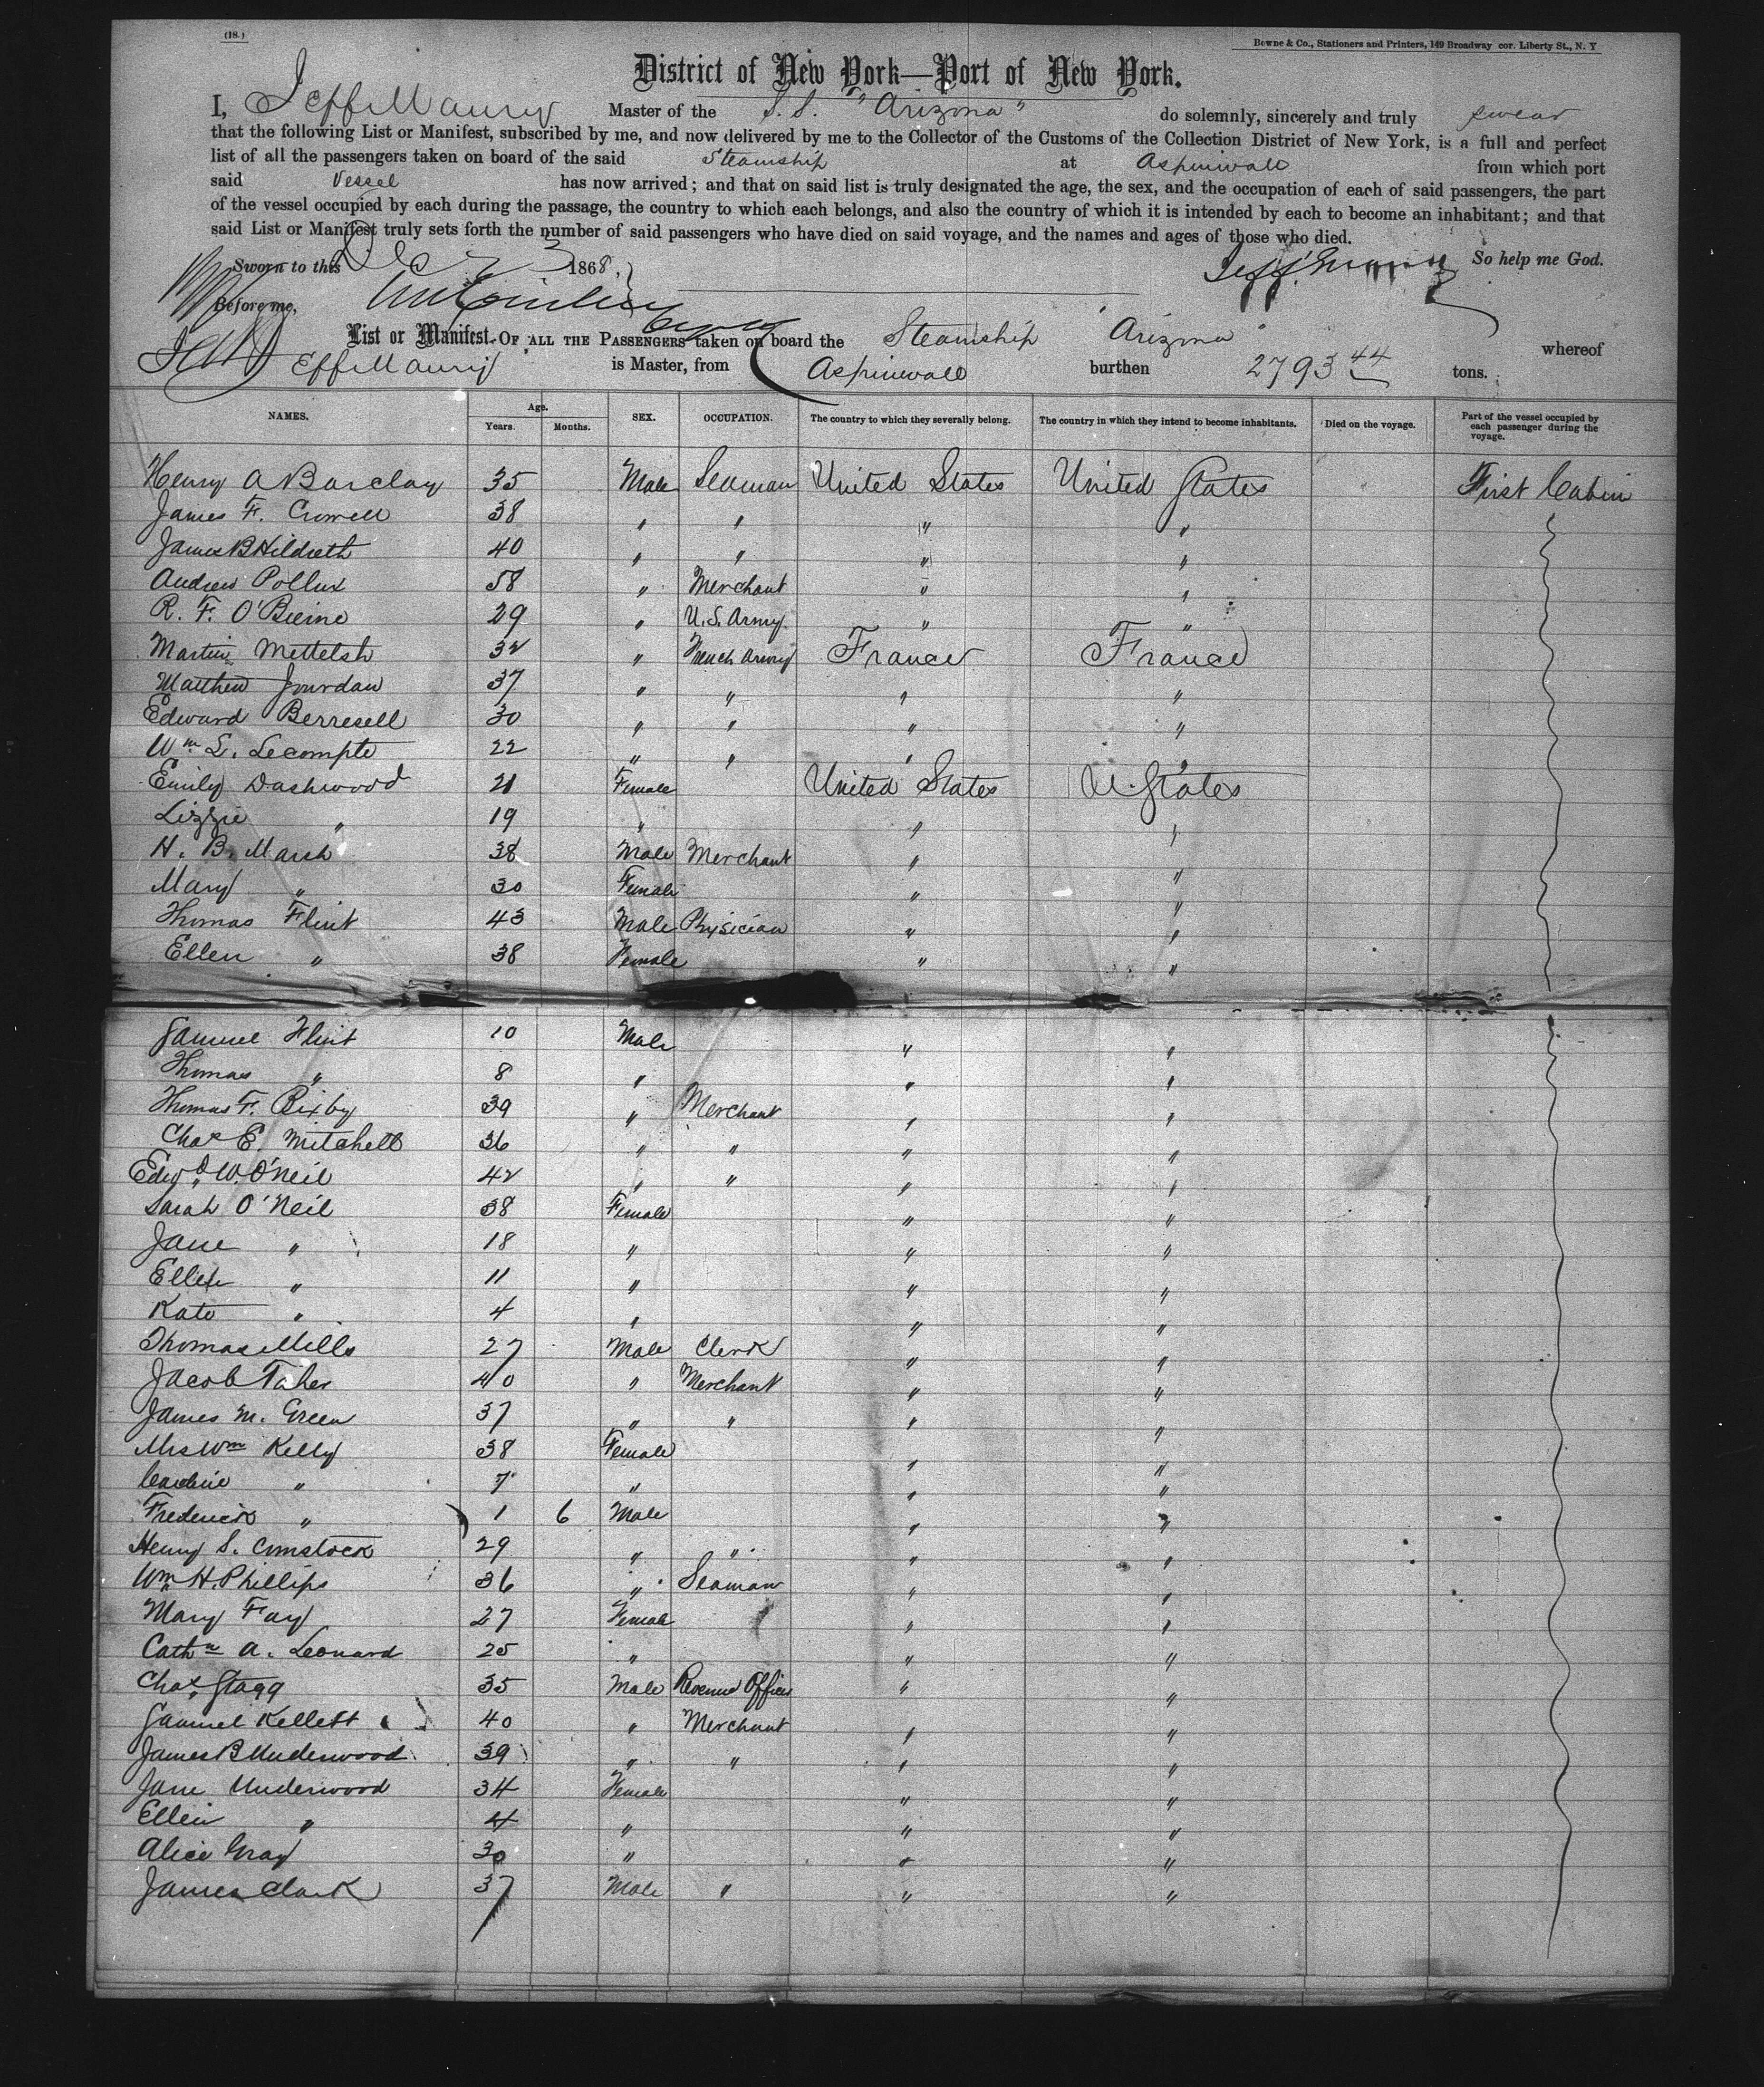 (18.)
Bowne & Co., Stationers and Printers, 149 Broadway cor. Liberty St., N. Y
District of New York—Port of New York.
I, Jeff Maury Master of the S. S. "Arizona" do solemnly, sincerely and truly swear
that the following List or Manifest, subscribed by me, and now delivered by me to the Collector of the Customs of the Collection District of New York, is a full and perfect
list of all the passengers taken on board of the said Steamship at Aspinwall from which port
said Vessel has now arrived; and that on said list is truly designated the age, the sex, and the occupation of each of said passengers, the part
of the vessel occupied by each during the passage, the country to which each belongs, and also the country of which it is intended by each to become an inhabitant; and that
said List or Manifest truly sets forth the number of said passengers who have died on said voyage, and the names and ages of those who died.
Sworn to this Dec 3 1868, Jeff Maury So help me God.
Before me,
List or Manifest OF ALL THE PASSENGERS taken on board the Steamship "Arizona" whereof
Jeff Maury is Master, from Aspinwall burthen 2793 44 tons.
NAMES. Age. Years. Months. SEX. OCCUPATION. The country to which they severally belong. The country in which they intend to become inhabitants. Died on the voyage. Part of the vessel occupied by each passenger during the voyage.
Henry A Barclay 35 Male Seaman United States United States First Cabin
James F. Crowell 38 " " " "
James B Hildreth 40 " " " "
Andrew Pollux 58 " Merchant " "
R. F. O'Beirne 29 " U.S. Army " "
Martin Mettelsh 32 " French Army France France
Matthew Jourdan 37 " " " "
Edward Berresell 30 " " " "
Wm L. Lecompte 22 " " " "
Emily Dashwood 21 Female United States U. States
Lizzie " 19 " " "
H. B. Marsh 38 Male Merchant " "
Mary " 30 Female " "
Thomas Flint 43 Male Physician " "
Ellen " 38 Female " "
Samuel Flint 10 Male " "
Thomas " 8 " " "
Thomas F. Bixby 39 " Merchant " "
Chas E. Mitchell 36 " " " "
Edwd W. O'Neil 42 " " " "
Sarah O'Neil 38 Female " "
Jane " 18 " " "
Ellen " 11 " " "
Kate " 4 " " "
Thomas Mills 27 Male Clerk " "
Jacob Taher 40 " Merchant " "
James M. Green 37 " " " "
Mrs Wm Kelly 38 Female " "
" 7 " " "
Frederick " 1 6 Male " "
Henry S. Comstock 29 " " " "
Wm H. Phillips 36 " Seaman " "
Mary Fay 27 Female " "
Cathn A. Leonard 25 " " "
Chas Stagg 35 Male Revenue Officer " "
Samuel Kellett 40 " Merchant " "
James B Underwood 39 " " " "
Jane Underwood 34 Female " "
Ellen " 4 " " "
Alice Gray 30 " " "
James Clark 37 Male " " "